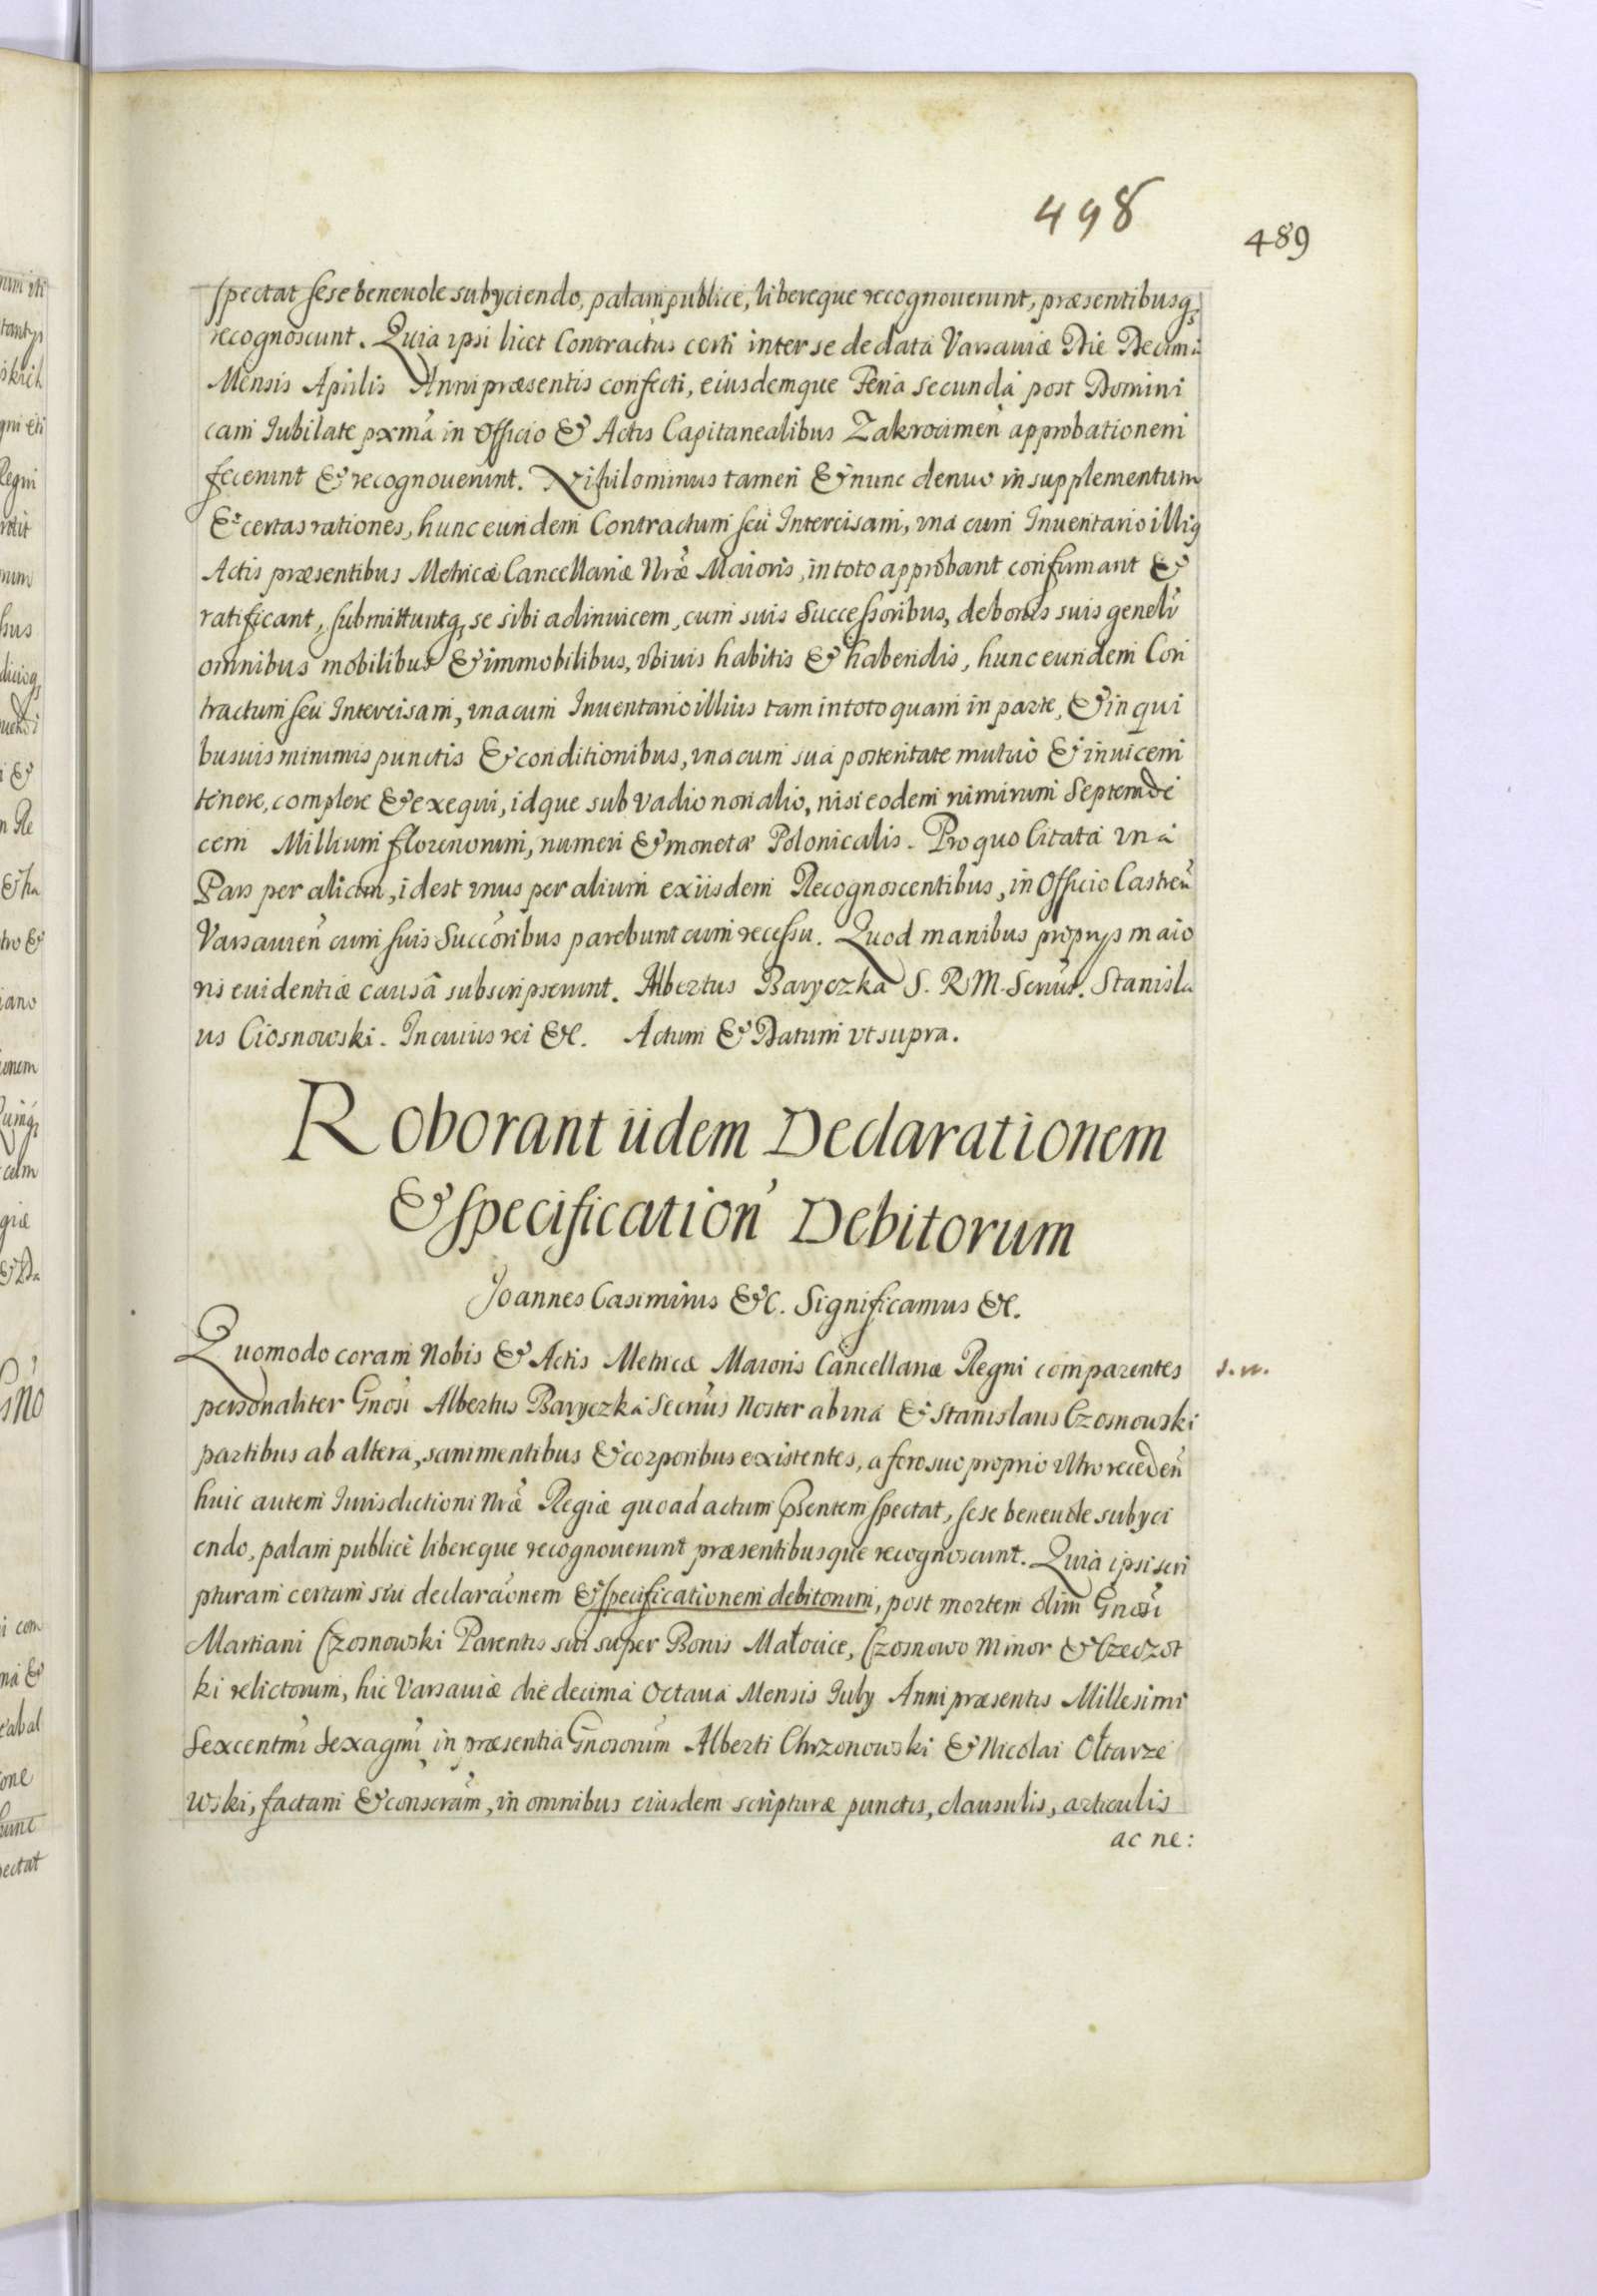 498
489
spectat sese beneuole subyciendo, palam publice, libereque recognouerunt, præsentibusq
recognoscunt. Quia ipsi licet Contractus certi inter se de data Varsauiæ Die Decima
Mensis Aprilis Anni præsentis confecti, eiusdemque Feria secunda post Domini
cam Iubilate pxmà in Officio & Actis Capitanealibus Zakrocimen̄ approbationem
fecerunt & recognouerunt. Nihilominus tamen & nunc denuo in supplementum
& certas rationes, hunc eundem Contractum seu Intercisam, vna cum Inuentario illiq
Actis præsentibus Metricæ Cancellariæ Nr̃æ Maioris, in toto approbant confirmant &
ratificant, submittuntq se sibi adinuicem, cum suis Successoribus, de bonis suis genelr̃
omnibus mobilibus & immobilibus, vbiuis habitis & habendis, hunc eundem Con
tractum seu Intercisam, vna cum Inuentario illius tam in toto quam in parte, & in qui
busuis minimis punctis & conditionibus, vna cum sua posteritate mutuo & inuicem
tenere, complere & exequi, idque sub vadio non alio, nisi eodem nimirum Septemde
cem Millium florenorum, numeri & monetæ Polonicalis. Pro quo Citata vna
Pars per aliam, id est vnus per alium ex iisdem Recognoscentibus, in Officio Castren̄
Varsauien̄ cum suis Succõribus parebunt cum recessu. Quod manibus proprys maio
ris euidentiæ causâ subscripserunt. Albertus Baryczka S. R M. Seruus. Stanisla
us Ciosnowski. In cuius rei &c. Actum & Datum vt supra.
Roborant iidem Declarationem
& specification̄ Debitorum
Joannes Casimirus &c. Significamus &c.
Quomodo coram Nobis & Actis Metricæ Maioris Cancellariæ Regni comparentes
s. n.
personaliter Gnosi Albertus Baryczka Secrius Noster ab vna & Stanislaus Czosnowski
partibus ab altera, sani mentibus & corporibus existentes, a foro suo proprio vltro receden̄
huic autem Iurisdictioni Nr̃æ Regiæ quoad actum pñsentem spectat, sese beneuole subyci
endo, palam publicè libereque recognouerunt præsentibusque recognoscunt. Quia ipsi scri
pturam certam siui declarãonem & specificationem debitorum, post mortem olim Gnosi
Martiani Czosnowski Parentis sui super Bonis Małocice, Czosnowo Minor & Czeczot
ki relictorum, hic Varsauiæ die decima Octaua Mensis Iuly Anni præsentis Millesimi
Sexcentmi Sexagmi in præsentia Gnosorum Alberti Chrzonowski & Nicolai Ołtarze
wski, factam & conscram, in omnibus eiusdem scripturæ punctis, clausulis, articulis
ac ne: